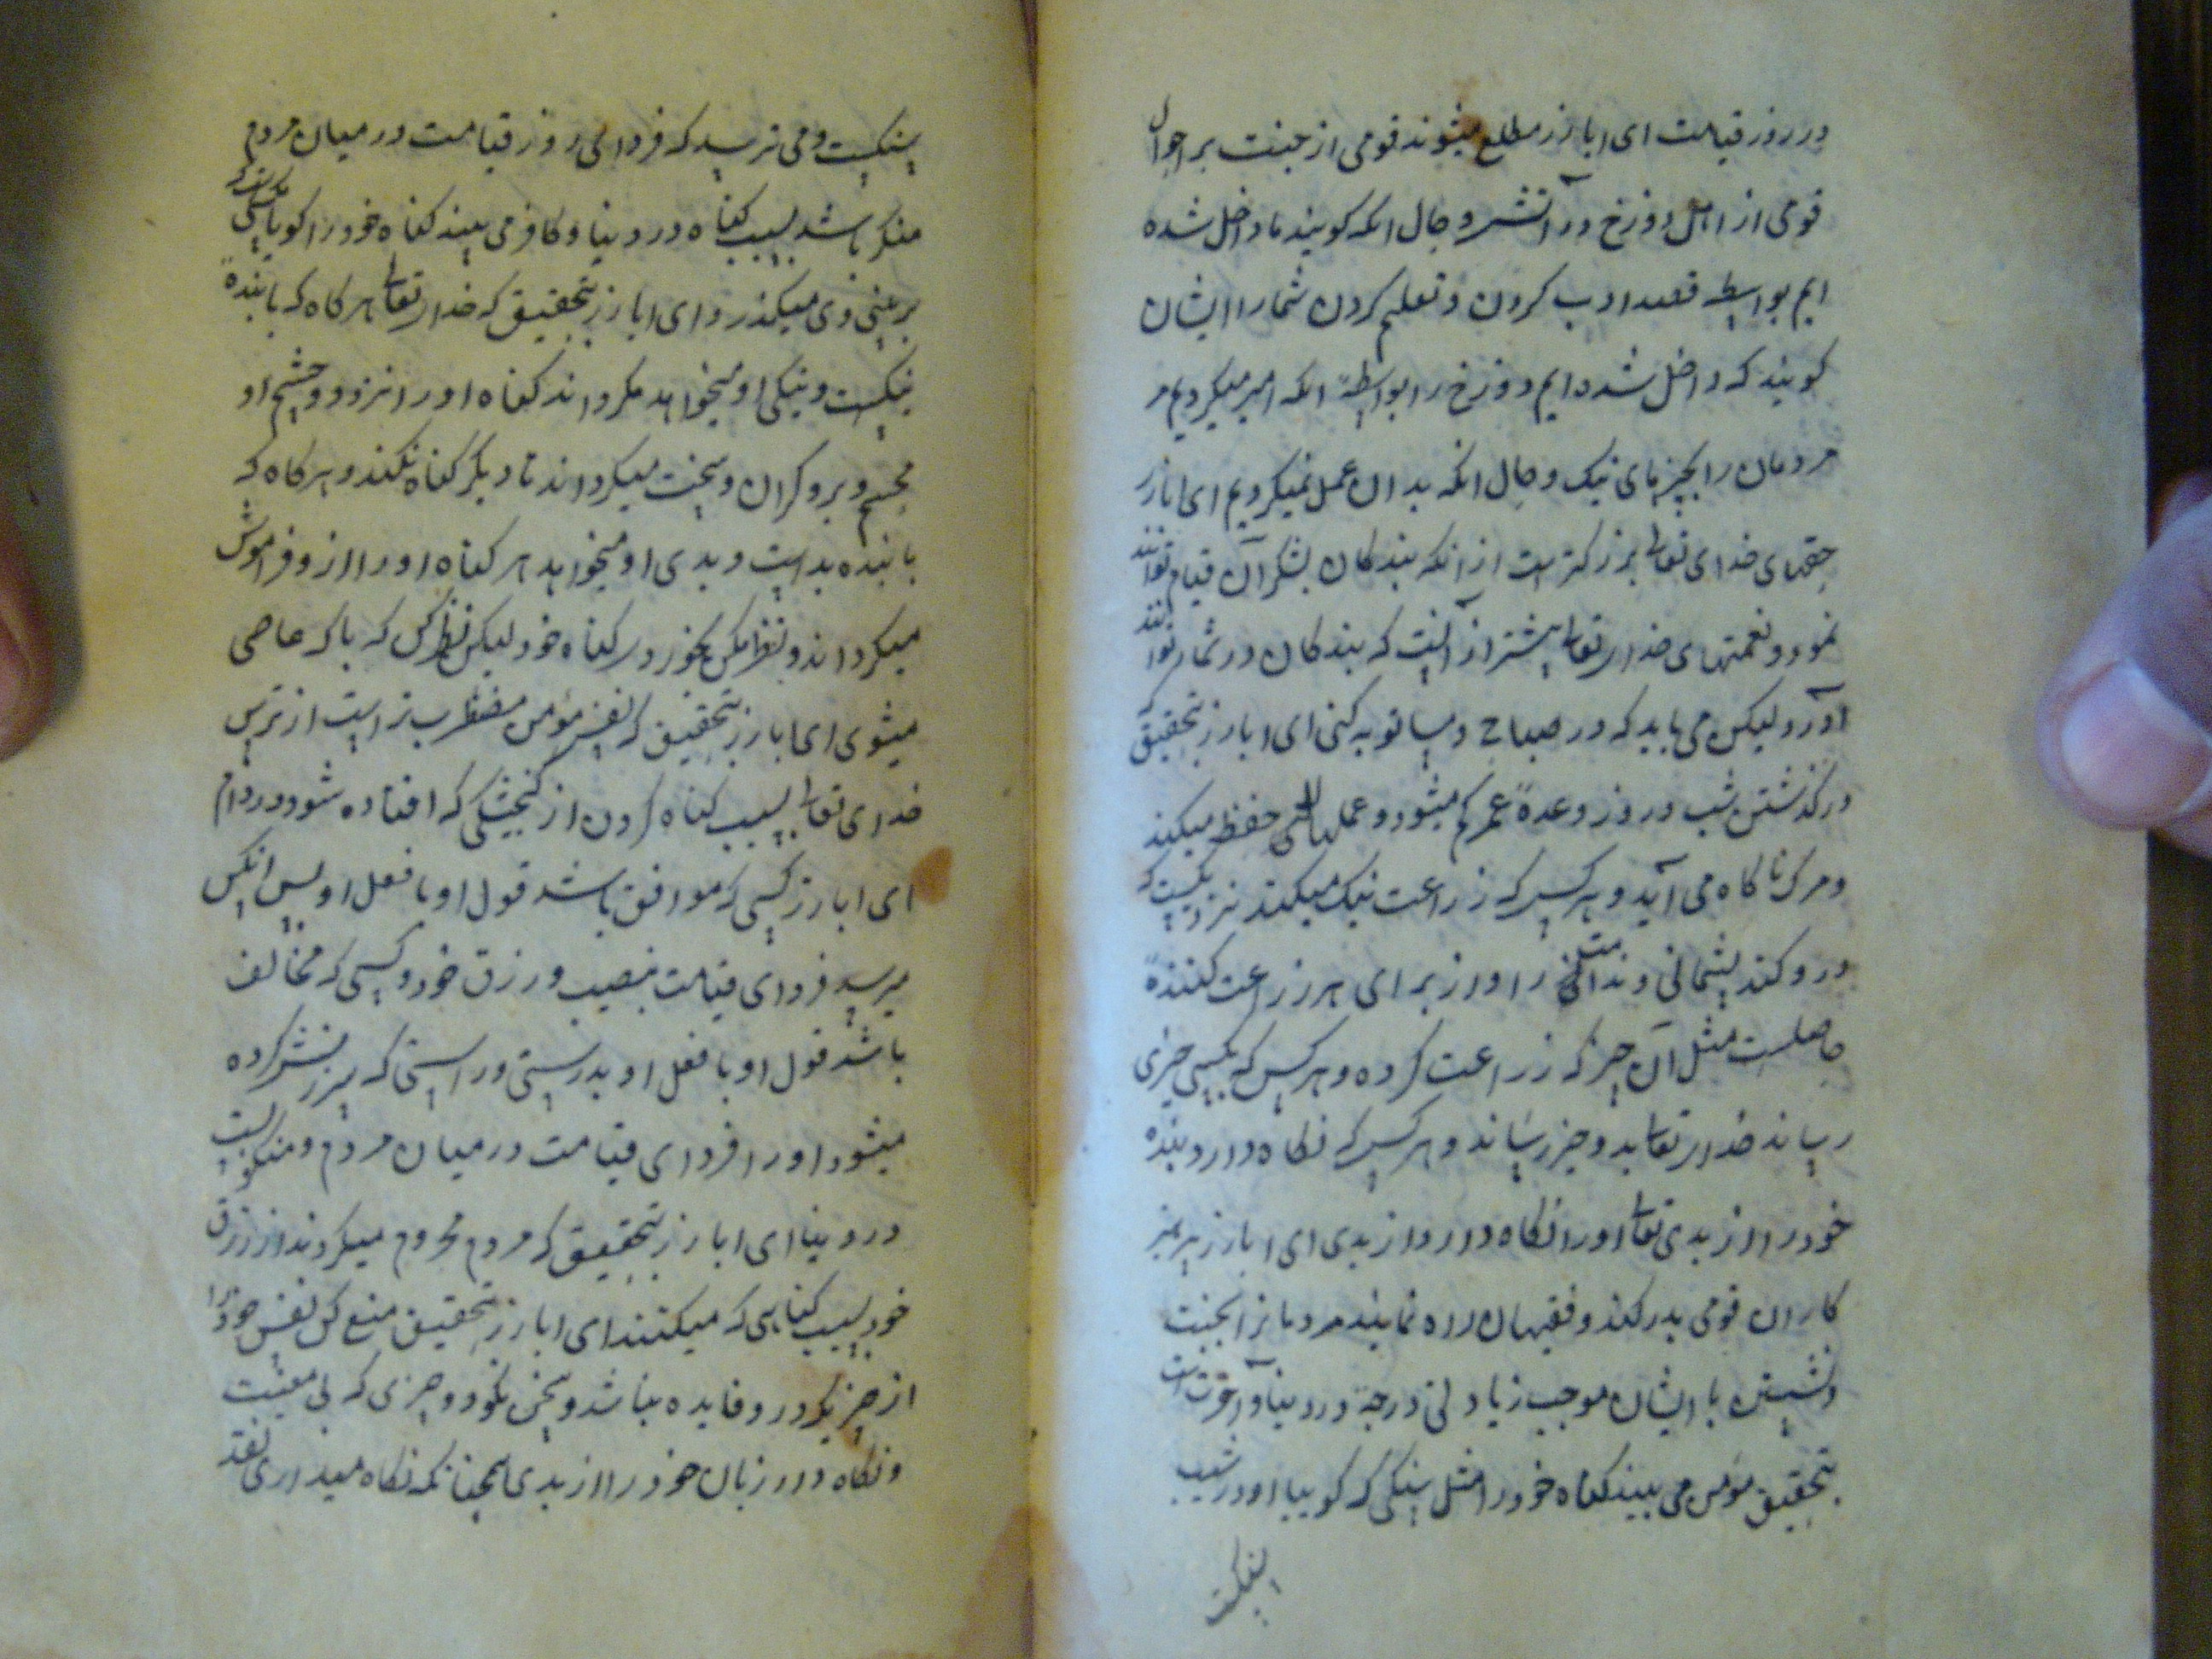 در روز قیامت ای ابازر مطلع میشوند قومی از جنت بر احوال
قومی از اهل دوزخ در آتش و حال انکه کویند ما داخل شده
ایم بواسطه قصد ادب کردن و تعلیم کردن شما را ایشان
کویند که داخل شده ایم دوزخ را بواسطهٔ انکه امر میکردیم مر
مردمان را بچیزهای نیک و حال انکه بدان عمل نمیکردیم ای ابازر
حقهای خدای تعالی بزرکترست از انکه بندکان بشکر آن قیام توانند
نمود و نعمتهای خدای تعالی بیشتر از آنست که بندکان در شمار توانند
آورد و لیکن می باید که در صباح و مسا توبه کنی ای ابازر بتحقیق که
در کذشتن شب و روز وعدهٔ عمر کم میشود و عملها حفظ میکند
و مرک ناکاه می آید و هر کس که زراعت نیک میکند نزدیکست که
درو کند پشمانی و ندامتی را و از برای هر زراعت کنندهٔ
حاصلست مثل آن چیز که زراعت کرده و هر کس که بکسی چیزی
رساند خدای تعالی بدو چیز رساند و هر کس که نکاه دارد بندهٔ
خود را از بدی تعالی او را نکاه دارد از بدی ای ابازر پرهیز
کاران قومی بدرکند و فقیهان راه نمایند مردمانرا بجنت
و نشستن با ایشان موجب زیادتی درجهٔ در دنیا و آخرت است
بتحقیق مؤمن می بیند کناه خود را مثل سنکی که کوییا او در شیب
سنکست و می ترسد که فردای روز قیامت در میان مردم
منکر باشد بسبب کناه در دنیا و کافر می بیند کناه خود را کویا مکسی که
بر بینی وی میکذرد ای ابازر بتحقیق که خدای تعالی هرکاه که با بندهٔ
نیکست و نیکی او میخواهد میکرداند کناه او را نزد دو چشم او
مجسم و برو کران و سخت میکرداند تا دیکر کناه نکند و هرکاه که
با بنده بد است و بدی او میخواهد هر کناه او را ازو فراموش
میکرداند و نظر مکن بخوردی کناه خود لیکن نظر کن که با که عاصی
میشوی ای ابازر بتحقیق که نفس مؤمن مضطرب تر است از ترس
خدای تعالی بسبب کناه کردن از کنجشکی که افتاده شود در دام
ای ابازر کسی که موافق باشد قول او با فعل او پس انکس
میرسد فردای قیامت بنصیب و رزق خود و کسی که مخالف
باشد قول او با فعل او بدرستی و راستی که سرزنش کرده
میشود او را فردای قیامت در میان مردم و
در دنیا ای ابازر بتحقیق که مردم محروم میکردند از رزق
خود بسبب کناهی که میکنند ای ابازر بتحقیق منع کن نفس خود را
از چیزیکه درو فایده نباشد و سخن مکو در چیزی که بی معنیست
و نکاه دار زبان خود را از بدی همچنانکه نکاه میداری نقد